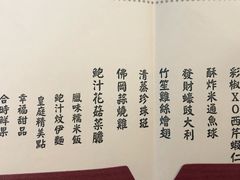 彩椒XO西芹蝦仁
酥炸米通魚球
發財蠔豉大利
竹笙雞絲燴翅
清蒸珍珠斑
佛岡蒜燒雞
鮑汁花菇菜膽
臘味糯米飯
鮑汁炆伊麵
皇庭精美點
幸福甜品
合時鮮果